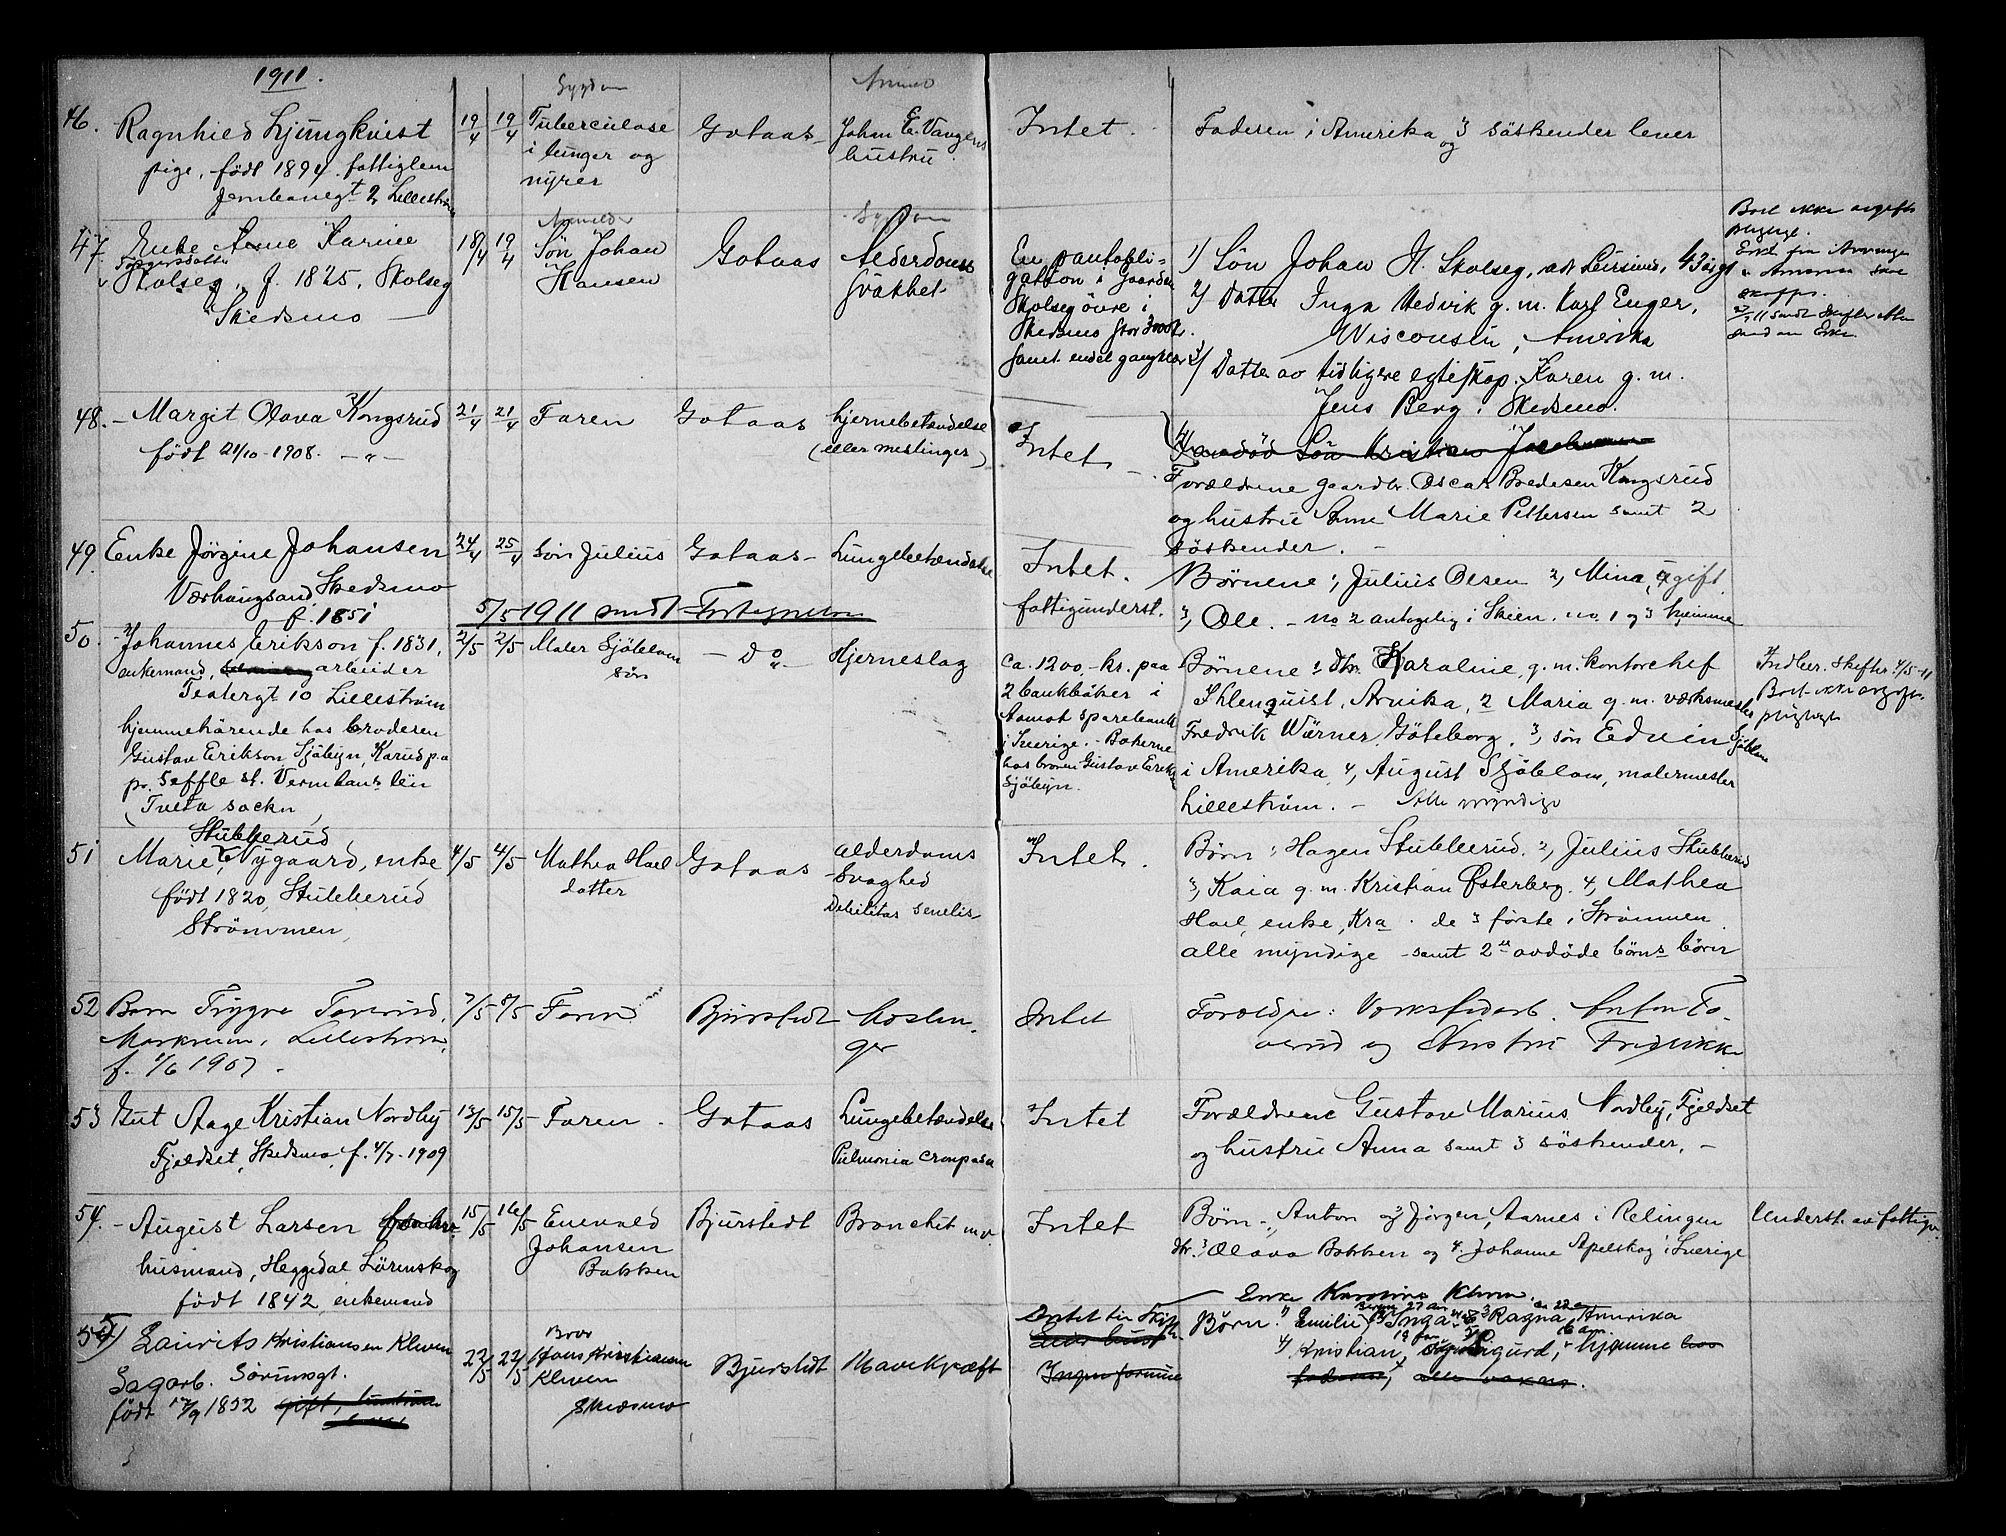 1911.
Sygdom
Anmeld
46. Ragnhild Ljungkvist
pige, født 1894. fattiglem
Jernbanegt 2 Lillestrøm
19/4 19/4
Tuberculose
i lunger og
nyrer
Gotaas
Johan E. Vangens
hustru.
Intet.
Faderen i Amerika og 3 söskender lever
47. Enke Anne Karine
Torgersdatter
Skolseg, f. 1825, Skolseg
Skedsmo
18/4 19/4
Anmelder
Sön Johan
Hansen
Gotaas
Sygdom
Alderdoms
svakhet
En pantobli-
gation i gaarden
Skolseg övre i
Skedsmo stor 3000 kr.
samt endel gangklær
1) Sön Johan H. Skolseg, 43 aar
2) Datter Inga Hedvik g. m. Karl Enger,
Wisconsin, Amerika
3) Datter av tidligere egteskap. Karen g. m.
Jens Berg i Skedsmo.
Bort ikke avgifts
pligtige.
48. Margit Olava Kongsrud
født 21/10-1908. -"-
21/4 21/4
Faren
Gotaas
hjernebetændelse
(eller meslinger)
Intet
Forældrene gaardbr. Oscar Bredesen Kongsrud
og hustru Anne Marie Pettersen samt 2
söskender.
49. Enke Jørgine Johansen
Værhaugsand, Skedsmo
f. 1851
24/4 25/4
Sön Julius
Gotaas
Lungebetændelse
Intet.
fattigunderst.
Børnene 1, Julius Olsen 2, Mina, ugift
3, Ole. - no 2 antagelig i Skien. no. 1 og 3 hjemme
5/5 1911 sendt Fortegnelse
50. Johannes Erikson f. 1831,
enkemand, arbeider
Teatergt 10 Lillestrøm
hjemmehörende hos broderen
Gustav Erikson, Sjöbyn, Karud p.a
pr. Seffle st. Vermlands län
(Tveta sockn)
2/5 2/5
Maler Sjöblom
sön
- do -
Hjerneslag
Ca. 1200,- kr. paa
2 bankböker i
Aamot sparebank
i Sverige. - Bökerne
hos broren Gustav Erikson
Sjöbyn.
Børnene 1 Dtr. Karoline, g. m. kontorchef
Ihlenquist, Arvika, 2 Maria g. m. værksmester
Fredrik Wärner, Göteborg, 3, sön Edvin Sjöblom
i Amerika, 4, August Sjöblom, malermester
Lillestrøm. - Alle myndige
Indber. skifter 4/5-11
Bort ikke avgifts
pligtigt
51 Stubberud
Marie Nygaard, enke
født 1820, Stubberud
Strømmen
4/5 4/5
Mathea Hael
datter
Gotaas
alderdoms
svaghed
Debilitas senelis
Intet.
Børn: Hagen Stubberud. 2, Julius Stubberud
3, Kaia g. m. Kristian Østerberg. 4, Mathea
Hael, enke, Kra. de 3 første i Strømmen
alle myndige - samt 2 avdöde börns börn
52 Barn Trygve Toverud,
Lillestrøm,
f. 1/6 1907
7/5 8/5
Faren
Bjurstedt
Meslin-
ger
Intet
Forældre: Verkstedarb. Anton To-
verud og Hustru Fredrikke
53 Gut Aage Kristian Nordby
Fjeldset, Skedsmo, f. 4/7-1909
13/5 15/5
Faren
Gotaas
Lungebetændelse
Pulmonia crouposa
Intet
Forældrene Gustav Marius Nordby, Fjeldset
og hustru Anna samt 3 söskender. -
54. August Larsen
husmand, Heggedal Lörenskog
født 1842, enkemand
15/5 16/5
Enevald
Johansen
Bakken
Bjurstedt
Bronchit m.v.
Intet
Børn - 1, Anton og 2, Jörgen, Aarnes i Relingen
dtr. 3 Olava Bakken og 4. Johanne Apelskog i Sverige
Underst. av fattigv.
55) Laurits Kristiansen Kleven
Sagarb. Sørumsgt.
født 17/9 1852 gift, hustruen
22/5 22/5
Bror
Hans Kristiansen
Kleven
Skedsmo
Bjurstedt
Mavekræft
Intet til Skifte
Ingen formue
Enke Karoline Kleven.
Børn: 1) Emilie, 2) Inga og 3 Ragna, Amerika
4) Kristian, 5) Sigurd, hjemme hos